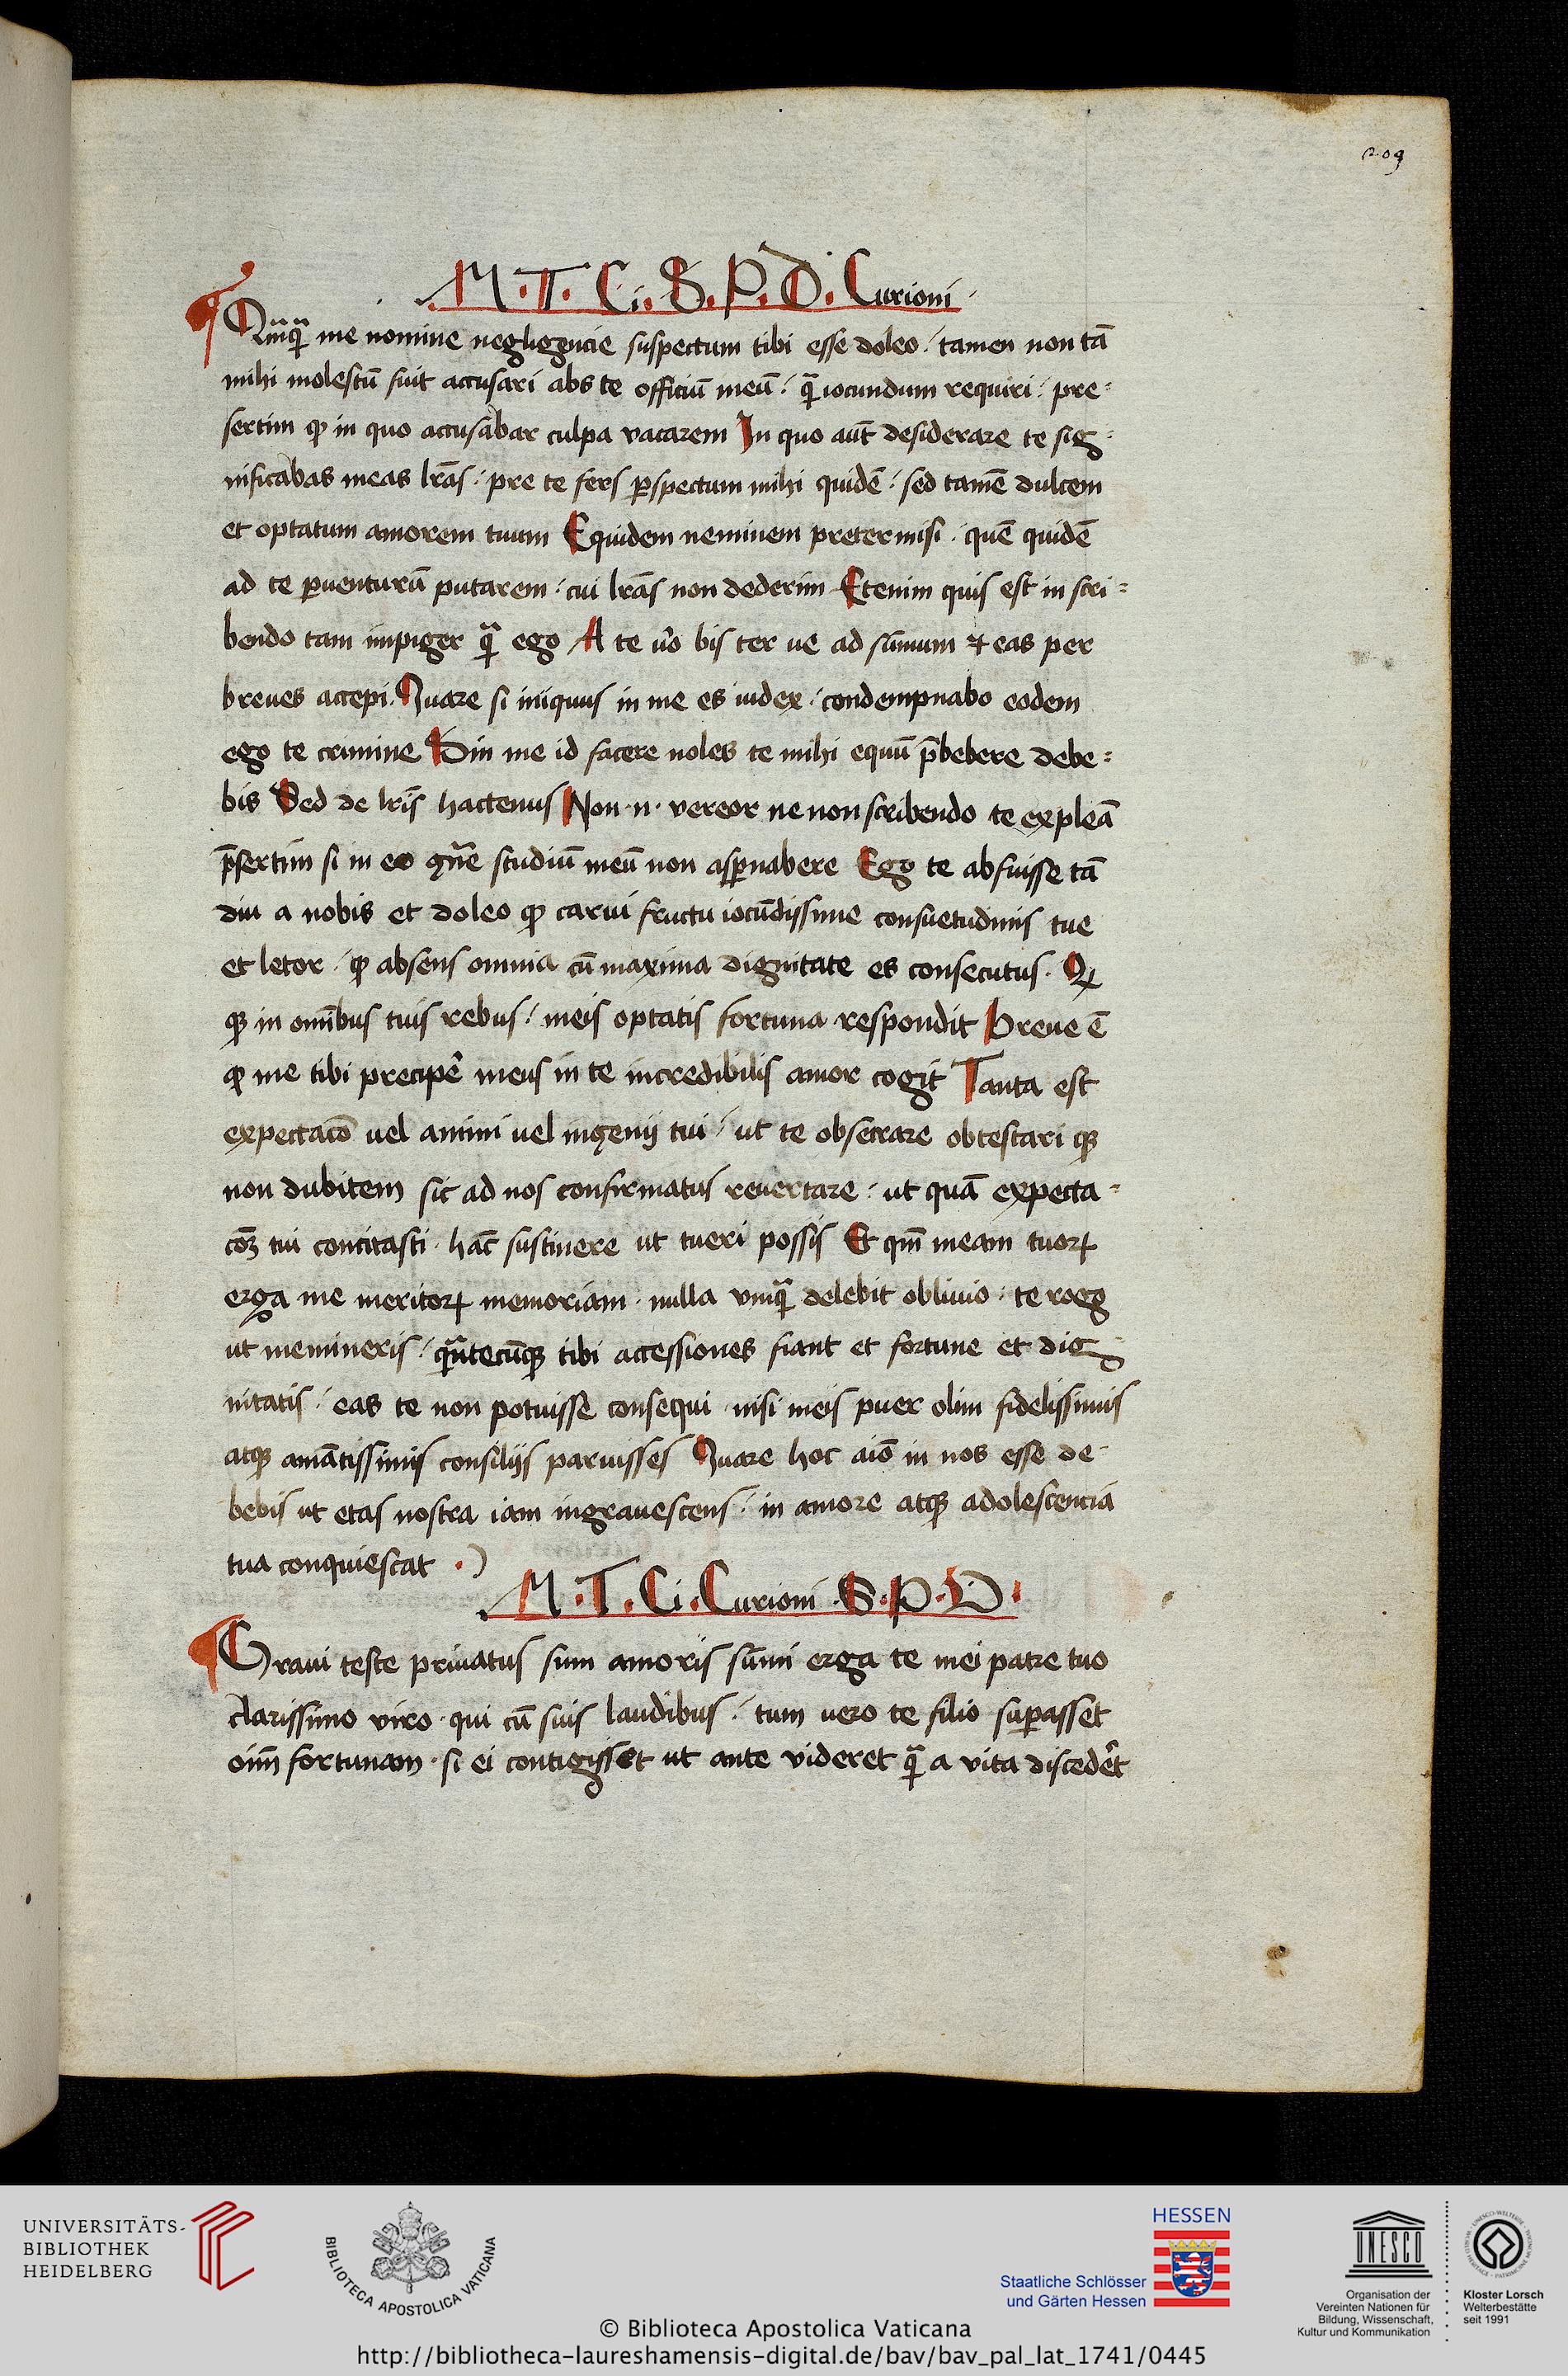 209
M. T. Ci. S. P. D. Curioni
Qũqȝ me nomine negligencie suspectum tibi esse doleo / tamen non tã
mihi molestũ fuit accusari abs te officiũ meũ / qͣ iocundum requiri / pre⸗
sertim ꝙ in quo accusabar culpa vacarem In quo aut̃ desiderare te sig⸗
nificabas meas lr̃as / pre te fers ꝑspectum mihi quidẽ / sed tamẽ dulcem
et optatum amorem tuum Equidem neminem pretermisi / quẽ quidẽ
ad te ꝑuenturũ putarem / cui lr̃as non dederim Etenim quis est in scri⸗
bendo tam impiger qͣ ego A te ṽo bis ter ue ad sũmum ⁊ eas per
breues accepi. Quare si iniquus in me es iudex / condempnabo eodem
ego te crimine Sin me id facere noles te mihi equũ p̃bebere debe⸗
bis Sed de lr̃is hactenus Non .n. vereor ne non scribendo te expleã
p̃sertim si in eo gñe studiũ meũ non asꝑnabere Ego te abfuisse tã
diu a nobis et doleo ꝙ carui fructu iocũdissime consuetudinis tue
et letor / ꝙ absens omnia cũ maxima dignitate es consecutus. Qꝛ
ꝙ in omĩbus tuis rebus / meis optatis fortuna respondit Breue ẽ
ꝙ me tibi precipẽ meus in te incredibilis amor cogit Tanta est
expectacõ uel animi uel ingenij tui / ut te obsecrare obtestari qꝫ
non dubitem sic ad nos confirmatus reuertare / ut quã expecta⸗
cõꝫ tui concitasti / hãc sustinere ut tueri possis Et qm̃ meam tuoꝝ
erga me meritoꝝ memoriam / nulla vnqͣ delebit obliuio / te roeg
ut memineris / qͣntecũqꝫ tibi accessiones fiant et fortune et dig⸗
nitatis / eas te non potuisse consequi / nisi meis puer olim fidelissimis
atqꝫ amãtissimis consilijs paruisses Quare hoc aiõ in nos esse de⸗
bebis ut etas nostra iam ingrauescens / in amore atqꝫ adolescencia
tua conquiescat .)
M. T. Ci. Curioni .S. P. D.
Graui teste priuatus sum amoris sũmi erga te mei patre tuo
clarissimo viro / qui cũ suis laudibus / tum uero te filio suꝑasset
oĩm fortunam / si ei contigisset ut ante videret qͣ a vita discedẽt
UNIVERSITÄTS-
BIBLIOTHEK
HEIDELBERG
BIBLIOTECA APOSTOLICA VATICANA
HESSEN
Staatliche Schlösser
und Gärten Hessen
UNESCO
Organisation der
Vereinten Nationen für
Bildung, Wissenschaft,
Kultur und Kommunikation
Kloster Lorsch
Welterbestätte
seit 1991
© Biblioteca Apostolica Vaticana
http://bibliotheca-laureshamensis-digital.de/bav/bav_pal_lat_1741/0445